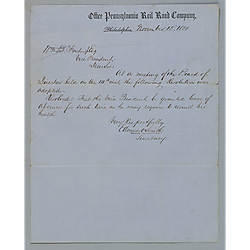 Office Pennsylvania Rail Road Company,
Philadelphia, November 18
Vice President,
Dear Sir,
At a meeting of the Board of
Directors held on the the following Resolution was
adopted.
Resolved: That the Vice President be granted leave of
absence for such time as he may require to recruit his
health.
Very Respectfully
Secretary